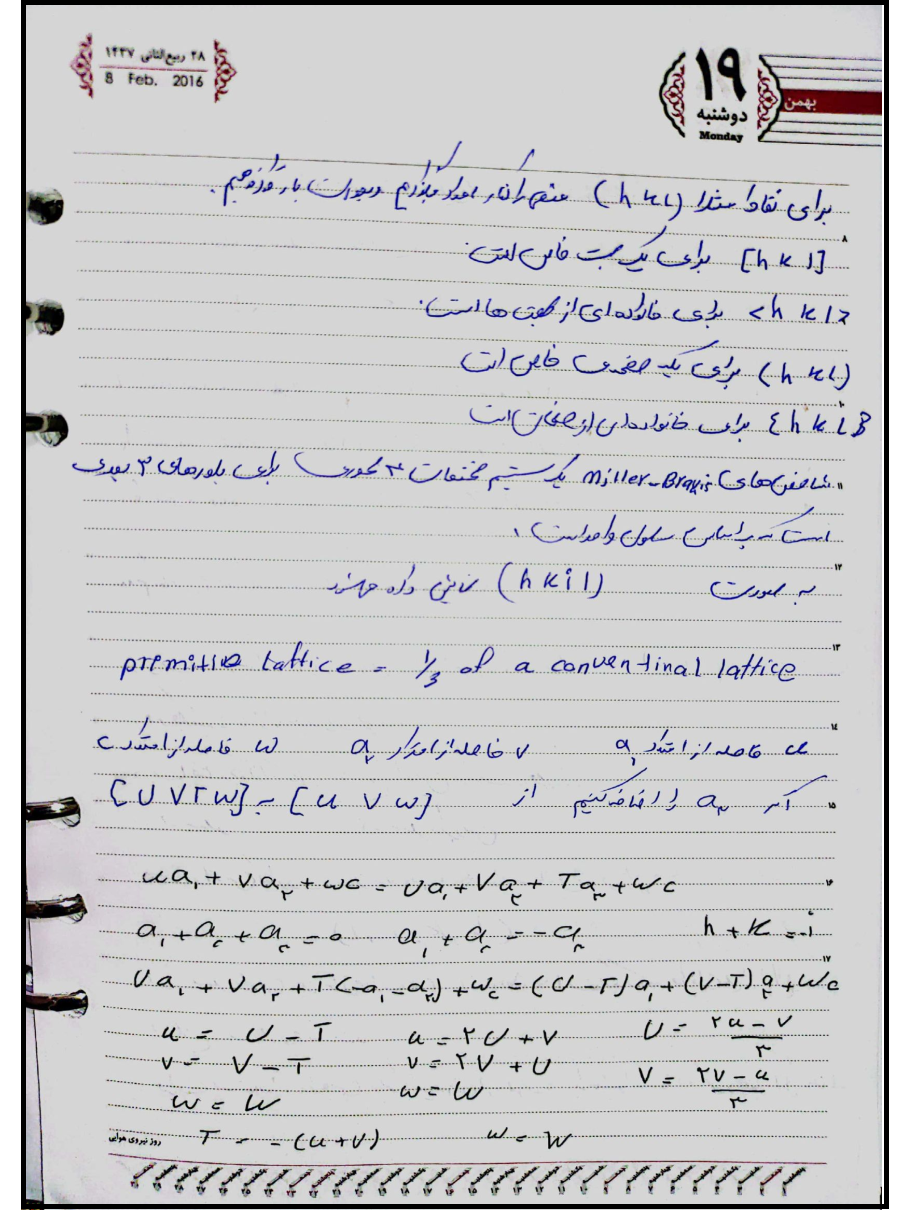 ۲۸ ربیع‌الثانی ۱۴۳۷
8 Feb. 2016
۱۹
بهمن
دوشنبه
Monday
برای نقاط مثلا (h k l) منفی را کنار اعداد میگذاریم و بصورت بار
۸
[h k l] برای یک جهت خاص است
< h k l > برای خانواده ای از جهت ها است.
(h k l) برای یک صفحه ی خاص است
۱۰
{ h k l } برای خانواده ای از صفحات است
۱۱
شاخص های Miller-Bravis یک سیستم مختصات ۴ محوری برای بلورهای ۳ بعدی
است که بر اساس سلول واحد است
۱۲
به صورت (h k i l) نمایش داده میشوند
۱۳
premitive lattice = 1/3 of a conventinal lattice
۱۴
u فاصله از امتداد a۱ v فاصله از امتداد a۲ w فاصله از امتداد c
۱۵
اگر a۳ را اضافه کنیم از [u v w] به [U V T W]
۱۶
ua۱ + va۲ + wc = Ua۱ + Va۲ + Ta۳ + Wc
a۱ + a۲ + a۳ = ۰ a۱ + a۲ = -a۳ h + k = -i
۱۷
Ua۱ + Va۲ + T(-a۱ - a۲) + Wc = (U - T)a۱ + (V-T)a۲ + Wc
u = U - T u = ۲U + V U = ۲u - v / ۳
v = V - T v = ۲V + U V = ۲v - u / ۳
w = W w = W
روز نیروی هوایی T = - (u + v) w = W